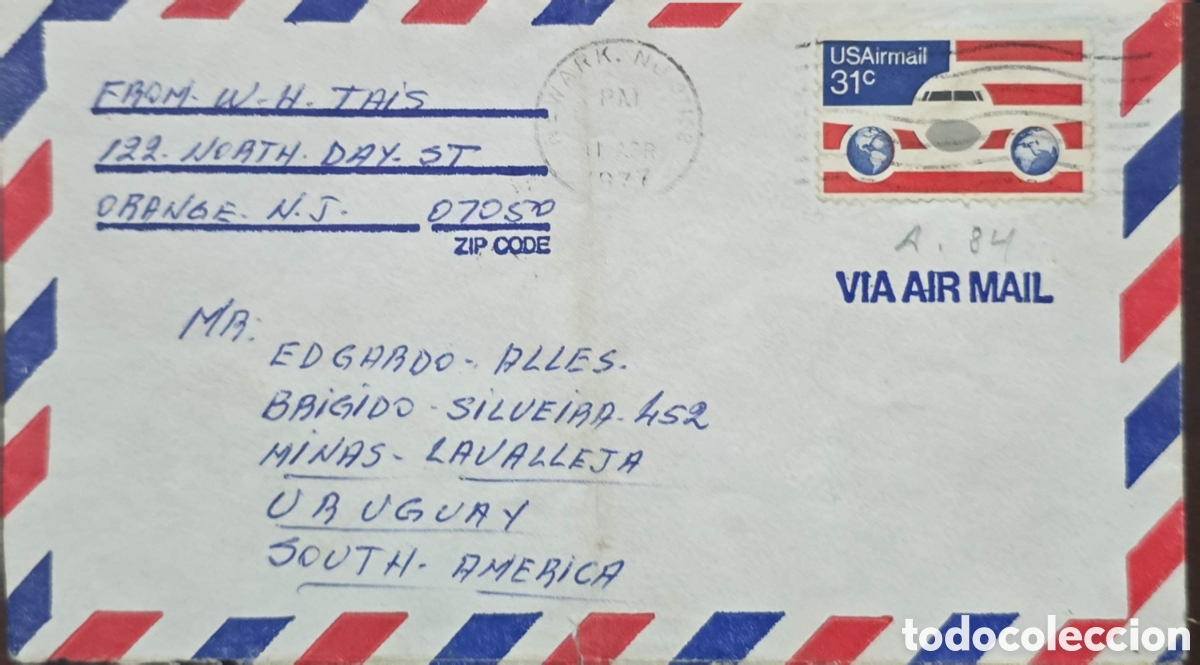 FROM- W-H- TAIS
122- NORTH- DAY- ST
ORANGE- N.J. 07050
ZIP CODE
NEWARK, NJ
PM
APR
1977
USAirmail
31c
A. 84
VIA AIR MAIL
MR:
EDGARDO- ALLES.
BRIGIDO- SILVEIRA- 452
MINAS- LAVALLEJA
URUGUAY
SOUTH- AMERICA
todocoleccion